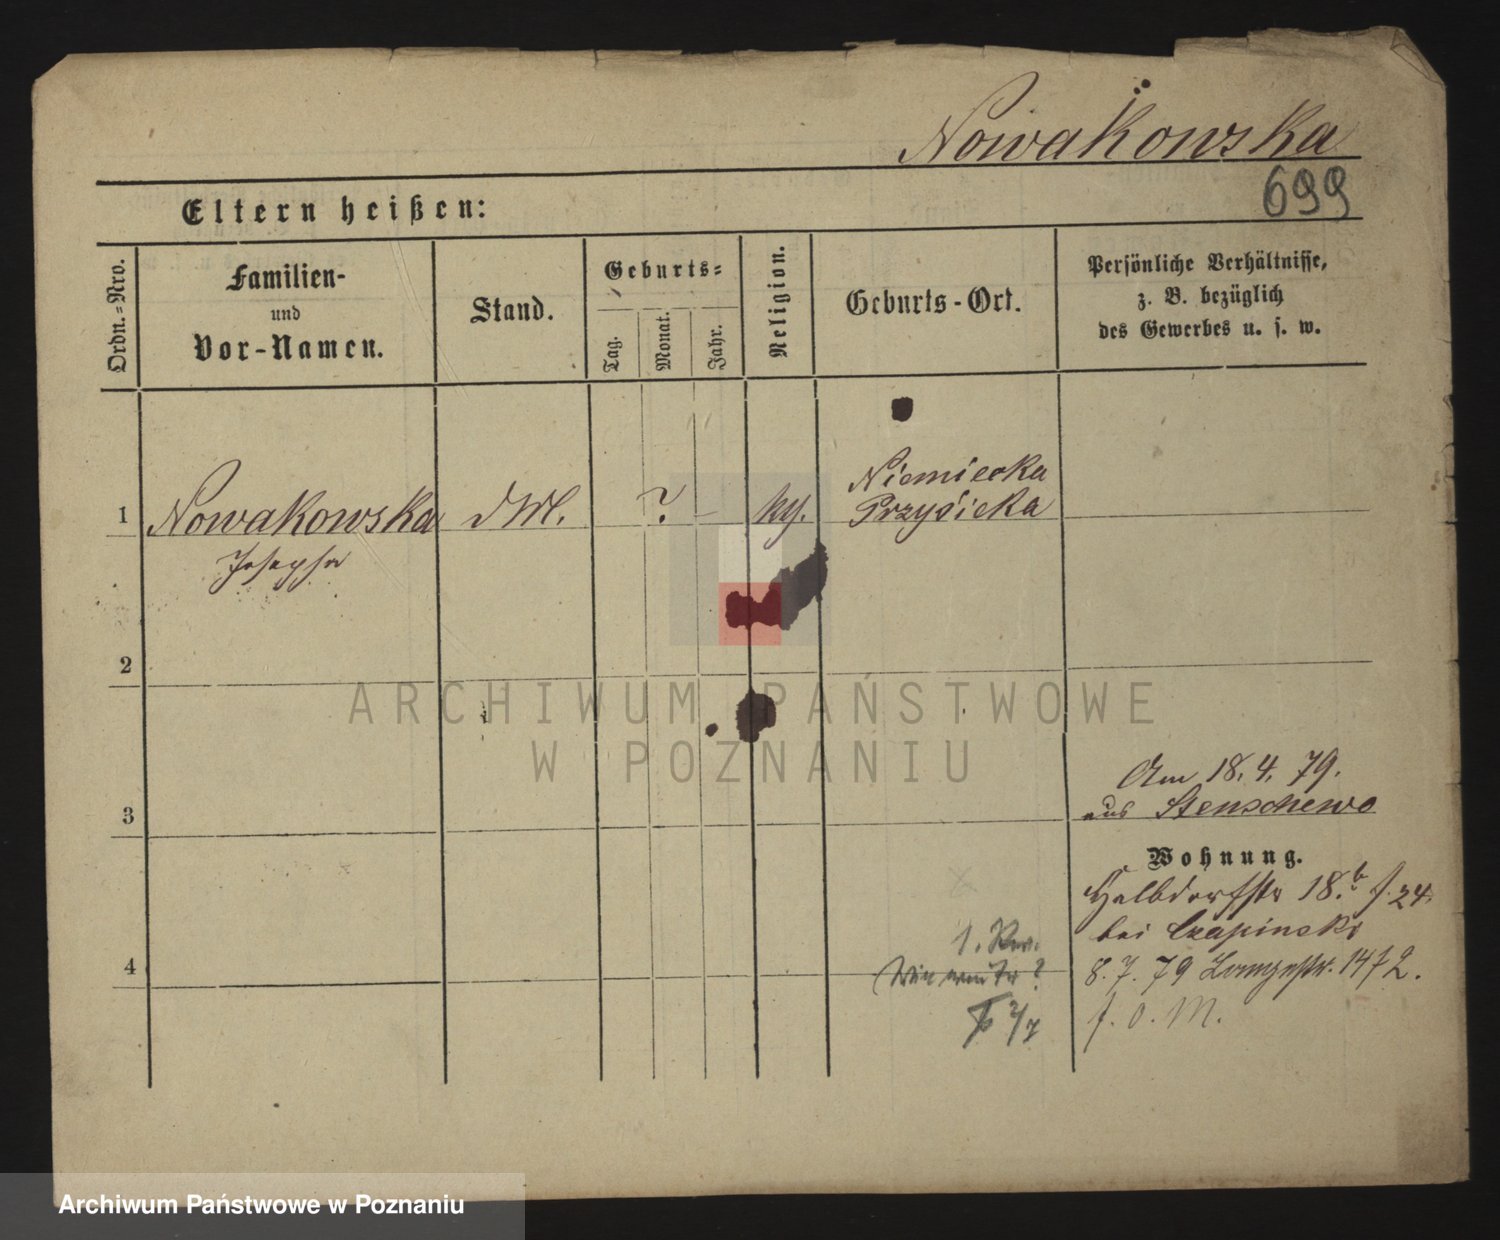 Nowakowska
699
Eltern heißen:
Ordn.-Nro.
Familien-
und
Vor-Namen.
Stand.
Geburts-
Tag.
Monat.
Jahr.
Religion.
Geburts-Ort.
Persönliche Verhältnisse,
z. B. bezüglich
des Gewerbes u. s. w.
1 Nowakowska
Josepha
?
Niemiecka
Przysieka
2
ARCHIWUM PAŃSTWOWE
W POZNANIU
3
Am 18. 4. 79.
aus Stenschewo
Wohnung.
Halbdorfstr 18.b
bei Czapinski
4
8. 7. 79 Langestr. 14
Archiwum Państwowe w Poznaniu